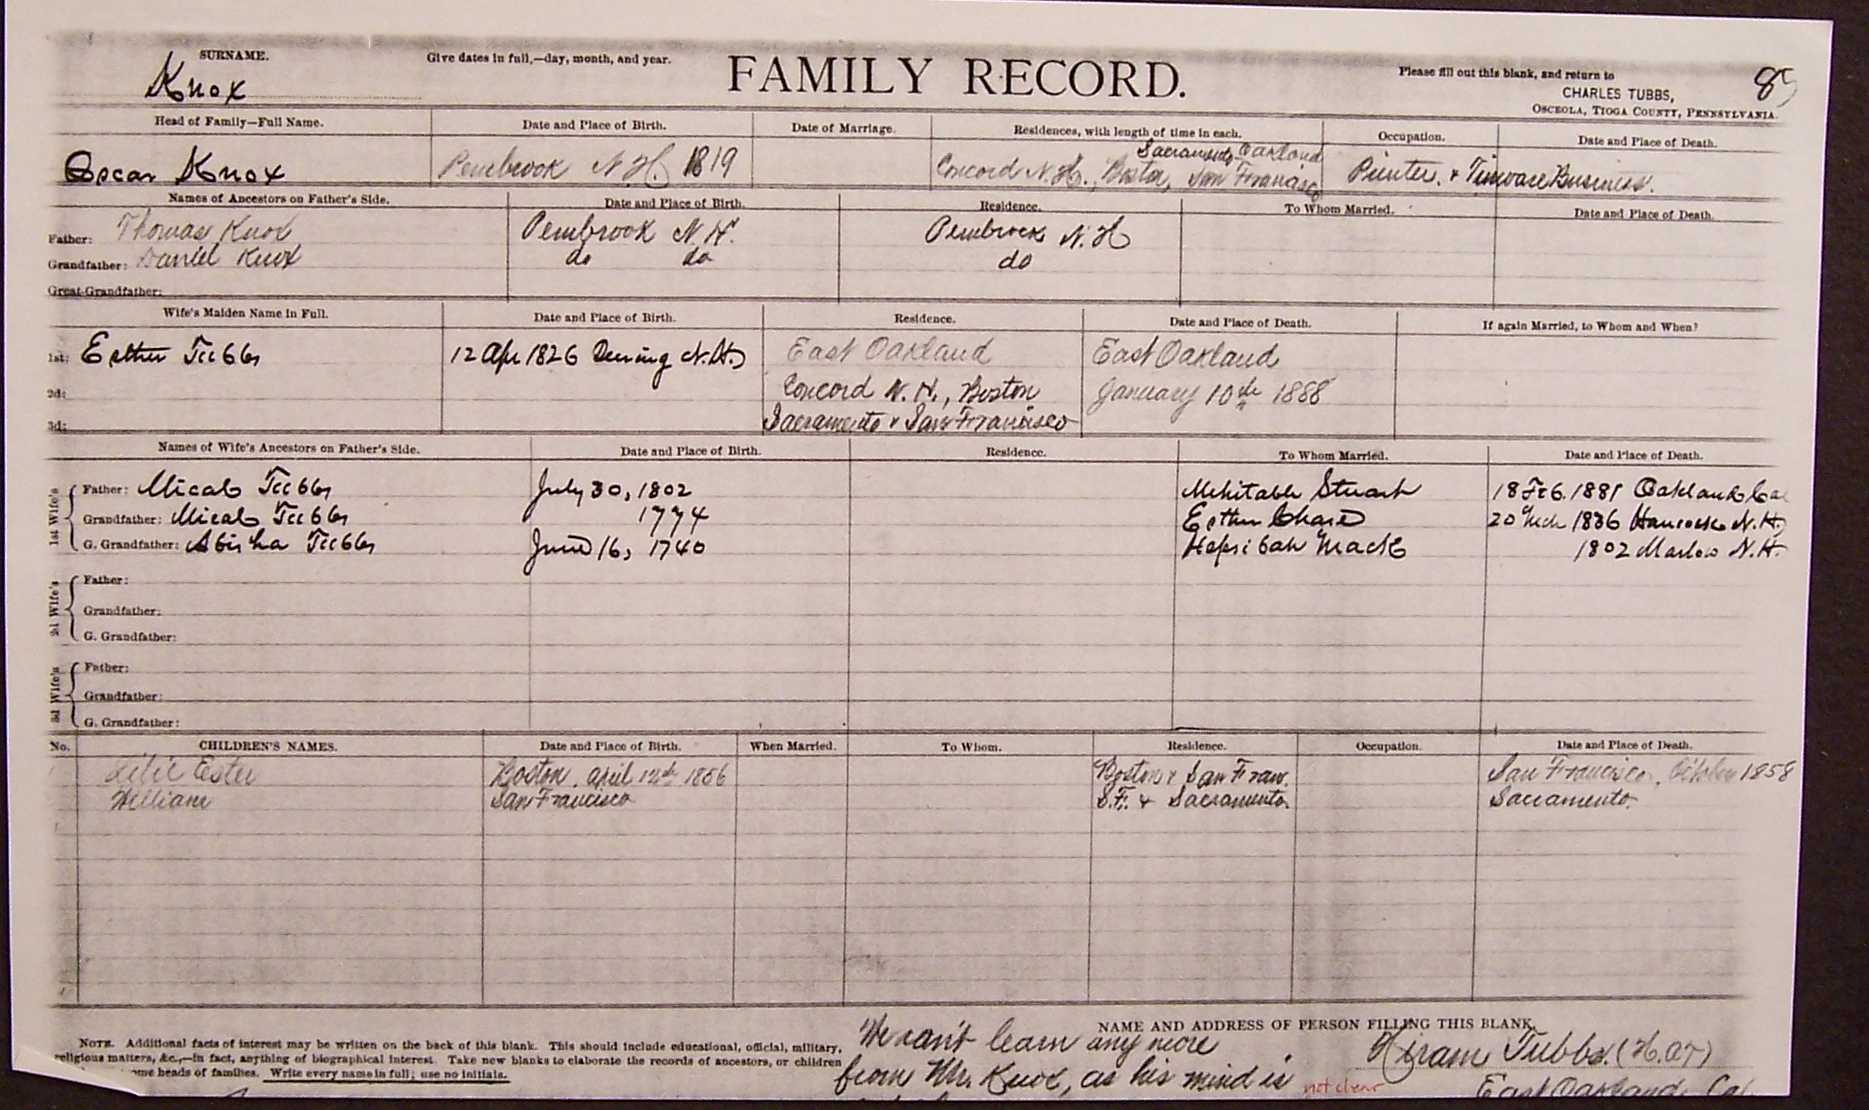 SURNAME.
Knox
Give dates in full,—day, month, and year.
FAMILY RECORD.
Please fill out this blank, and return to
CHARLES TUBBS,
OSCEOLA, TIOGA COUNTY, PENNSYLVANIA.
Head of Family—Full Name. Date and Place of Birth. Date of Marriage. Residences, with length of time in each. Occupation. Date and Place of Death.
Sacramento Oakland
Oscar Knox Pembrook N.H. 1819 Concord N.H., Boston, San Francisco & Tinware Business.
Names of Ancestors on Father's Side. Date and Place of Birth. Residence. To Whom Married. Date and Place of Death.
Father: Thomas Knox Pembrook N.H. Pembrock N.H
Grandfather: Daniel Knox do do do
Great-Grandfather:
Wife's Maiden Name in Full. Date and Place of Birth. Residence. Date and Place of Death. If again Married, to Whom and When?
1st: Esther Tubbs 12 Apr 1826 Dering N.H. East Oakland East Oakland
2d: Concord N.H., Boston January 10th 1888
3d: Sacramento & San Francisco
Names of Wife's Ancestors on Father's Side. Date and Place of Birth. Residence. To Whom Married. Date and Place of Death.
1st Wife's
Father: Micah Tubbs July 30, 1802 Mehitable Stuart 18 Feb. 1881 Oakland Cal
Grandfather: Micah Tubbs 1774 Esther Chase 20 Mch 1836 Hancock N.H.
G. Grandfather: Abisha Tubbs June 16, 1740 Hepsibah Mack 1802 Marlow N.H.
2d Wife's
Father:
Grandfather:
G. Grandfather:
3d Wife's
Father:
Grandfather:
G. Grandfather:
No. CHILDREN'S NAMES. Date and Place of Birth. When Married. To Whom. Residence. Occupation. Date and Place of Death.
Ester Boston, april 12th 1856 Boston & San Fran. San Francisco, October 1858
William San Francisco S.F. & Sacramento. Sacramento.
NAME AND ADDRESS OF PERSON FILLING THIS BLANK.
NOTE. Additional facts of interest may be written on the back of this blank. This should include educational, official, military,
religious matters, &c.,—in fact, anything of biographical interest. Take new blanks to elaborate the records of ancestors, or children
heads of families. Write every name in full; use no initials.
We can't learn any more
from Mr. Knox, as his mind is not clear
Hiram Tubbs. (H.a.T)
East Oakland, Cal.